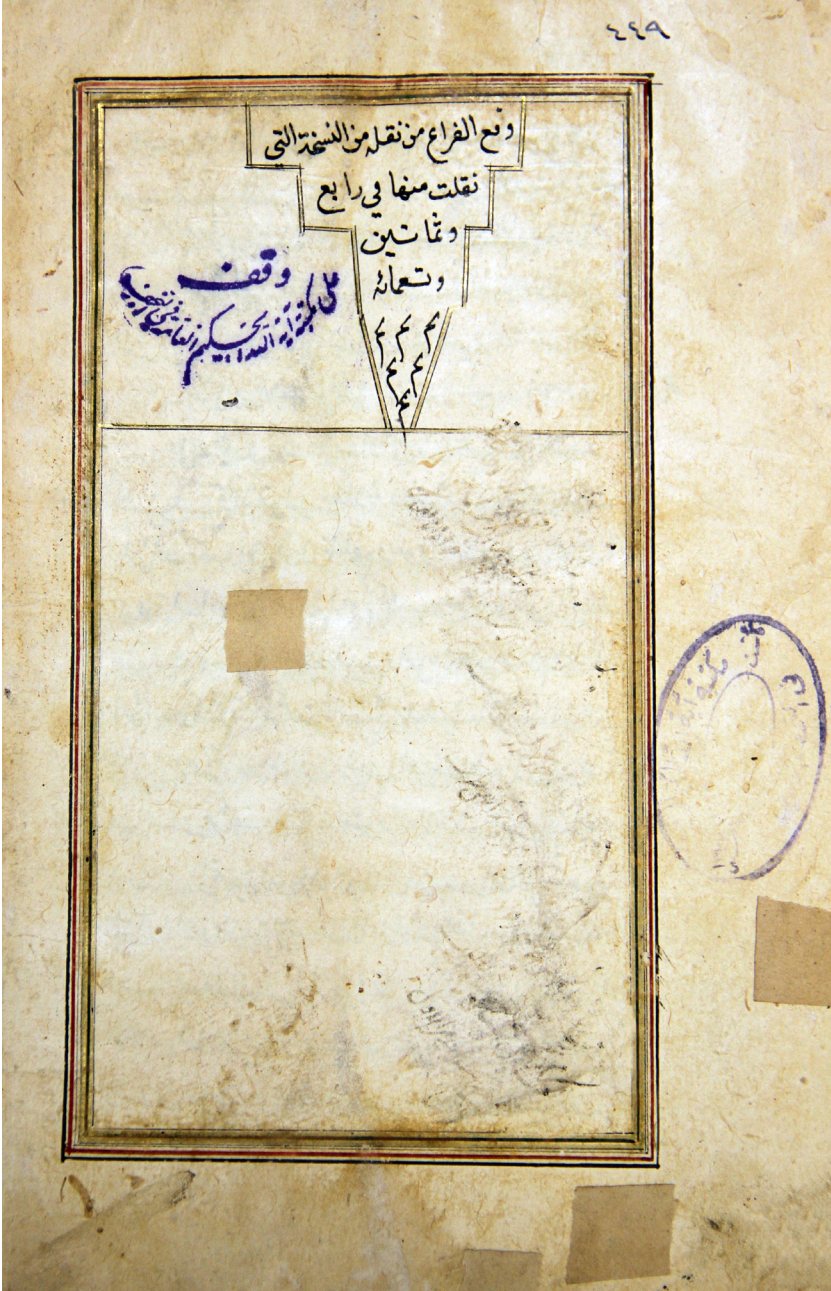 ٤٤٩
وقع الفراغ من نقله من النسخة التي
نقلت منها في رابع
وثمانين
وتسعمائه
م م م
م م
م
وقف
على مكتبة آية الله الحكيم العامة في
مكتبة آية الله